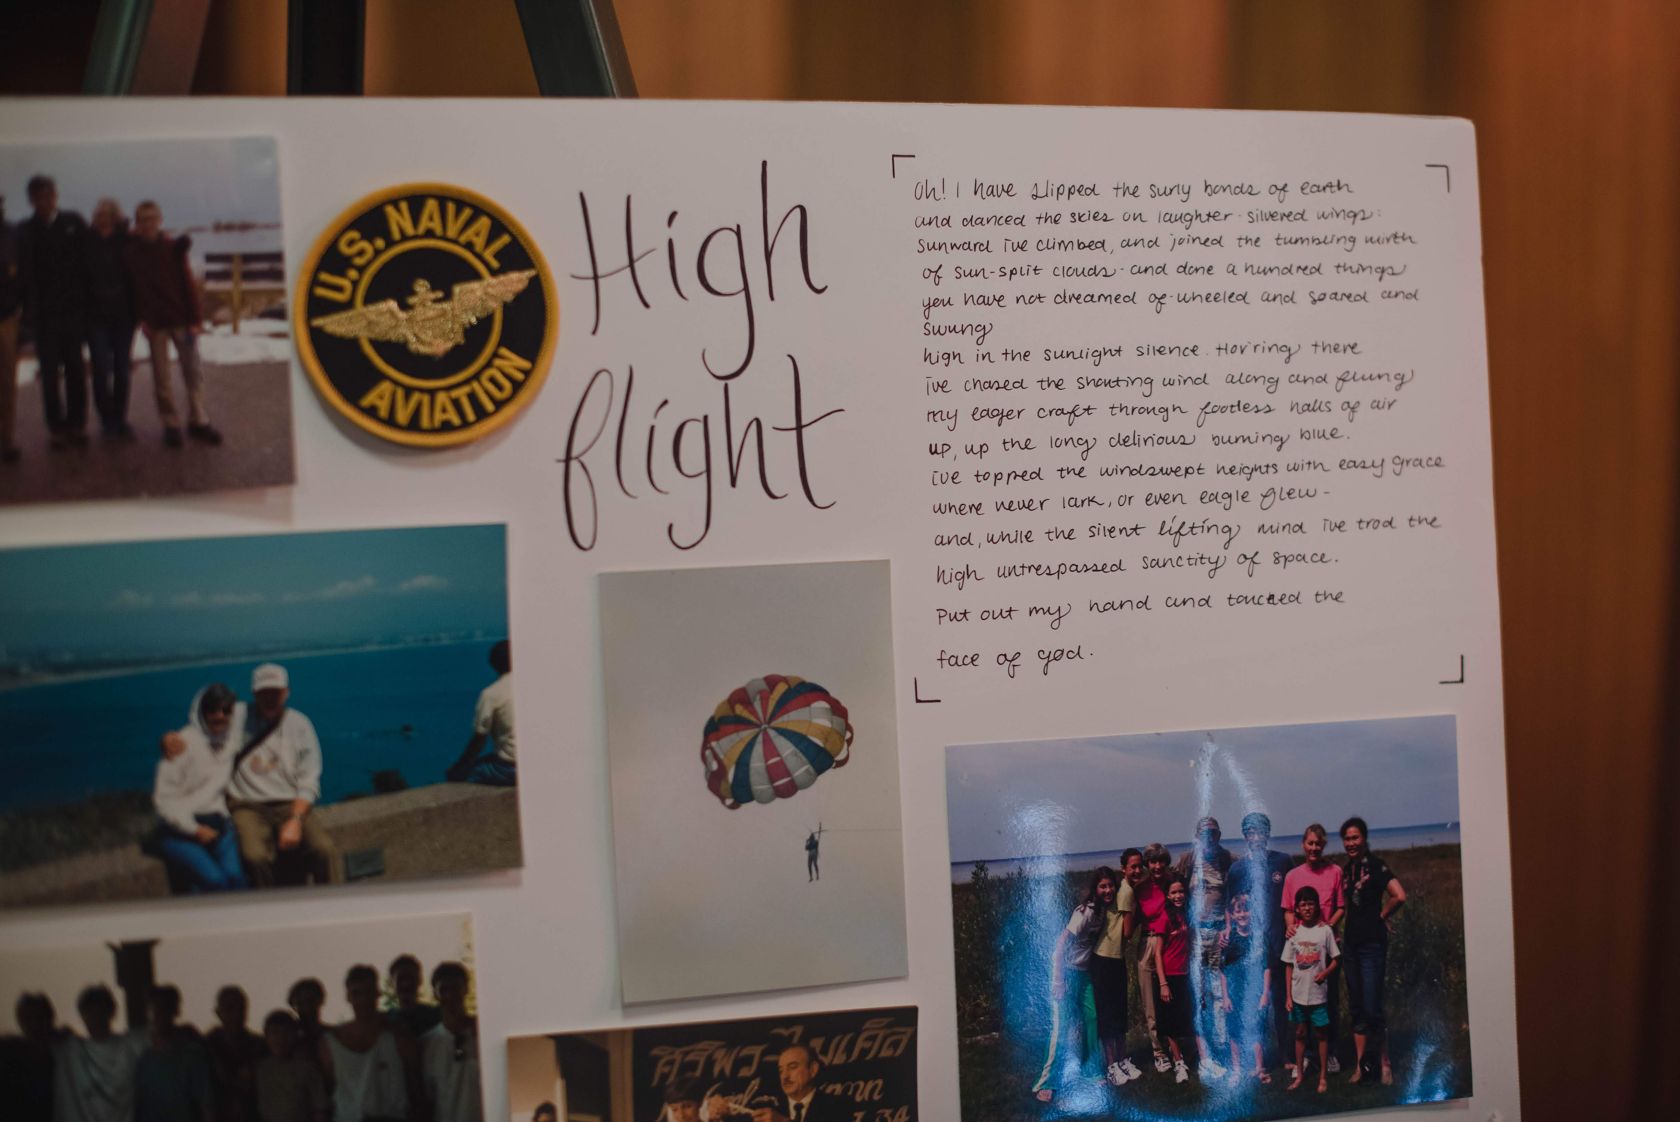 U.S. NAVAL
AVIATION
High
flight
Oh! I have slipped the surly bonds of earth
and danced the skies on laughter-silvered wings:
Sunward i've climbed, and joined the tumbling mirth
of sun-split clouds - and done a hundred things
you have not dreamed of - wheeled and soared and
swung
high in the sunlight silence. Hov'ring there
i've chased the shouting wind along and flung
my eager craft through footless halls of air
up, up the long delirious burning blue.
i've topped the windswept heights with easy grace
where never lark, or even eagle flew -
and, while the silent lifting mind i've trod the
high untrespassed sanctity of space.
Put out my hand and touched the
face of god.
ศิริพร-ไมเคิล